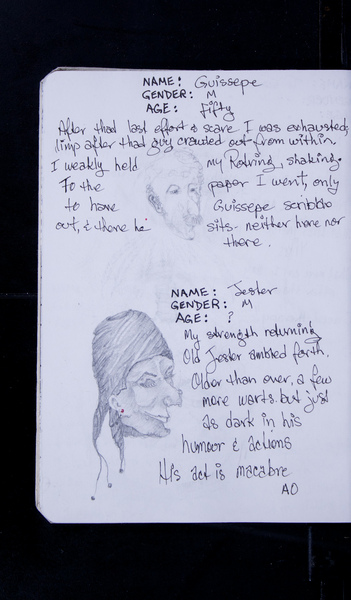 NAME: Guissepe
GENDER: M
AGE: Fifty
After that last effort & scare I was exhausted;
limp after that guy crawled out from within
I weakly held my Rotring, shaking.
To the paper I went, only
to have Guissepe scribble
out, & there he sits - neither here nor
there.
NAME: Jester
GENDER: M
AGE: ?
My strength returning
Old Jester ambled forth.
Older than over, a few
more warts. but just
as dark in his
humour & actions
His act is macabre
AO